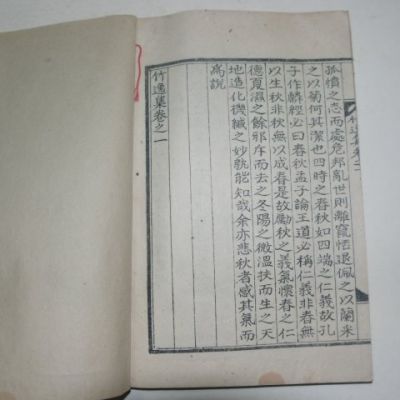 孤憤之志而處危邦亂世則離竄悟退佩之以蘭釆
之以菊何其潔也四時之春秋如四端之仁義故孔
子作麟經必曰春秋孟子論王道必稱仁義非春無
以生秋非秋無以成春是故勵秋之義氣懷春之仁
德夏濕之餘邪斥而去之冬陽之微溫扶而生之天
地造化機緘之妙孰能知哉余亦悲秋者感其氣而
爲說
竹逸集卷之一